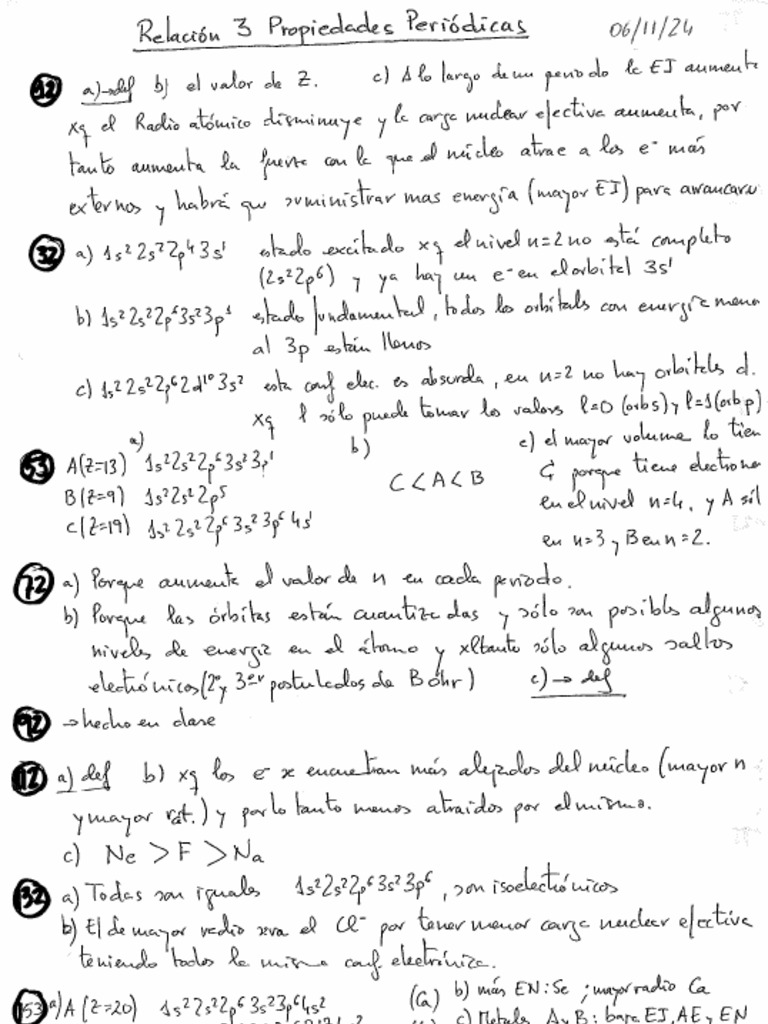 Relación 3 Propiedades Periódicas 06/11/24
a)→def b) el valor de Z. c) A lo largo de un periodo la EI aumenta
xq el Radio atómico disminuye y la carga nuclear efectiva aumenta, por
tanto aumenta la fuerza con la que el núcleo atrae a los e⁻ más
externos y habrá que suministrar mas energía (mayor EI) para arrancarlos
32 a) 1s² 2s² 2p⁴ 3s¹ estado excitado xq el nivel n=2 no está completo
(2s² 2p⁶) y ya hay un e⁻ en el orbital 3s¹
b) 1s² 2s² 2p⁶ 3s² 3p¹ estado fundamental, todos los orbitals con energía menor
al 3p están llenos
c) 1s² 2s² 2p⁶ 2d¹⁰ 3s² esta conf elec. es absurda, en n=2 no hay orbitals d.
xq l sólo puede tomar los valors l=0 (orb s) y l=1 (orb p)
53 a) b) c) el mayor volumen lo tien
A(Z=13) 1s² 2s² 2p⁶ 3s² 3p¹ C < A < B C porque tiene electrones
B(Z=9) 1s² 2s² 2p⁵ en el nivel n=4, y A sól
C(Z=19) 1s² 2s² 2p⁶ 3s² 3p⁶ 4s¹ en n=3 y B en n=2.
72 a) Porque aumenta el valor de n en cada periodo.
b) Porque las órbitas están cuantizadas y sólo son posibles algunos
niveles de energía en el átomo y xltanto sólo algunos saltos
electrónicos (2º y 3er postulados de Bohr) c)→ def
92 → hecho en clase
112 a) def b) xq los e⁻ se encuentran más alejados del núcleo (mayor n
y mayor rat.) y por lo tanto menos atraidos por el mismo.
c) Ne > F > Na
132 a) Todas son iguales 1s² 2s² 2p⁶ 3s² 3p⁶, son isoelectrónicos
b) El de mayor radio sera el Cl⁻ por tener menor carga nuclear efectiva
teniendo todos la misma conf electrónica.
153 a) A (Z=20) 1s² 2s² 2p⁶ 3s² 3p⁶ 4s² (Ca) b) más EN: Se ; mayor radio Ca
c) Metals A y B: baja EI, AE y EN